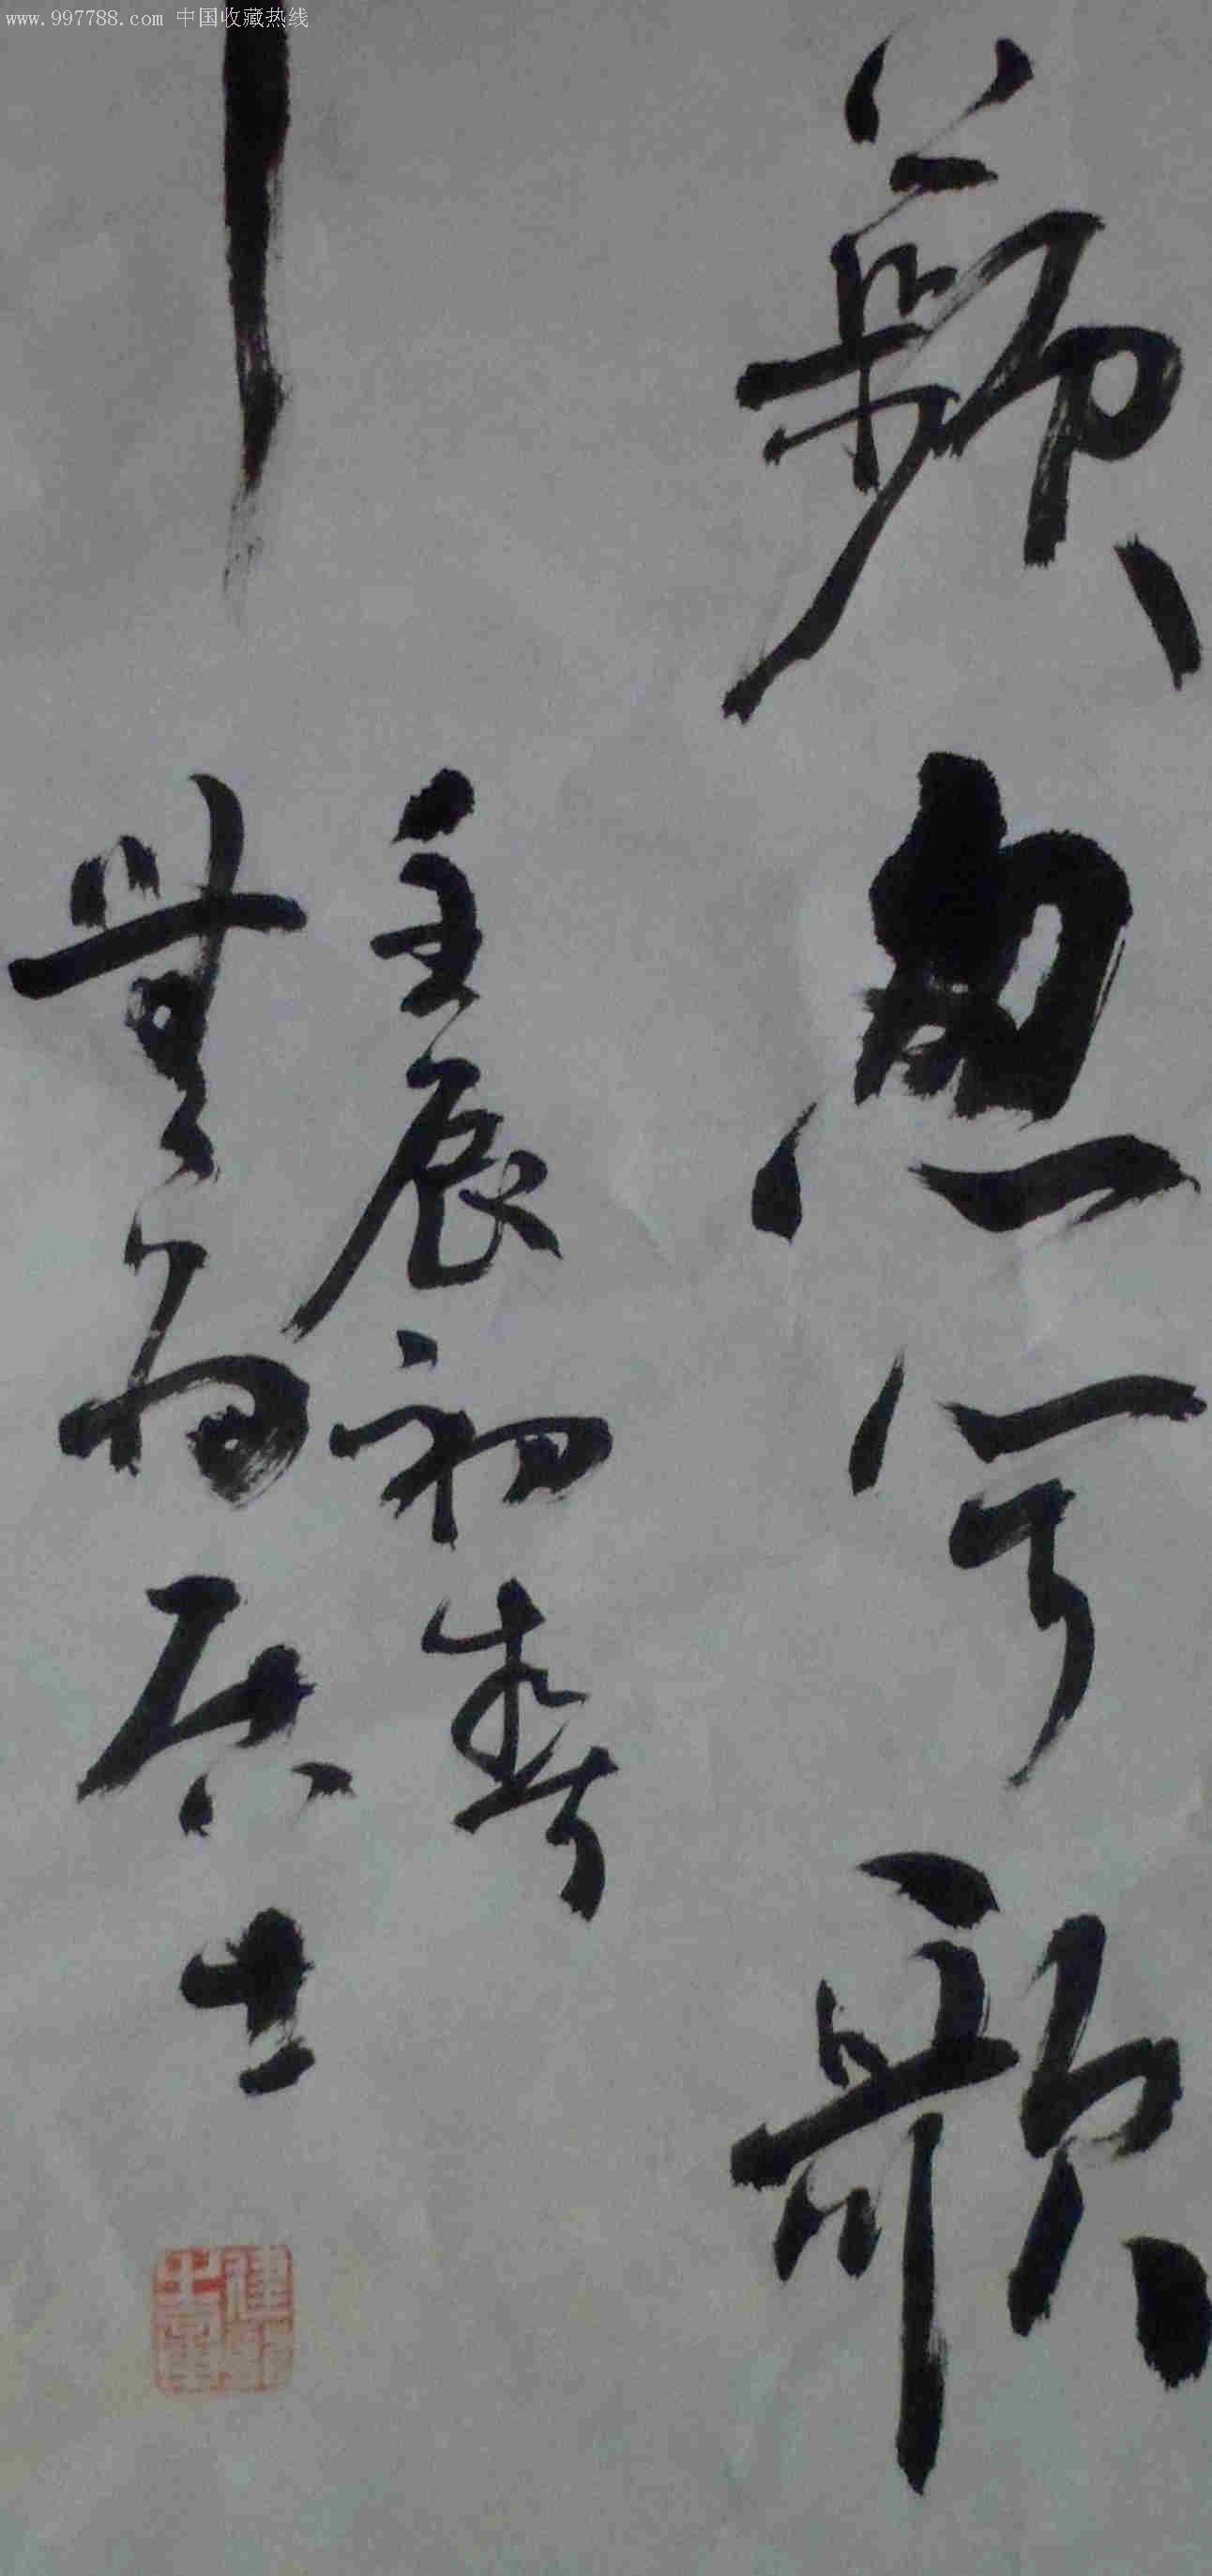 www.997788.com 中国收藏热线
蘋忽闻歌
壬辰初春
無為居士